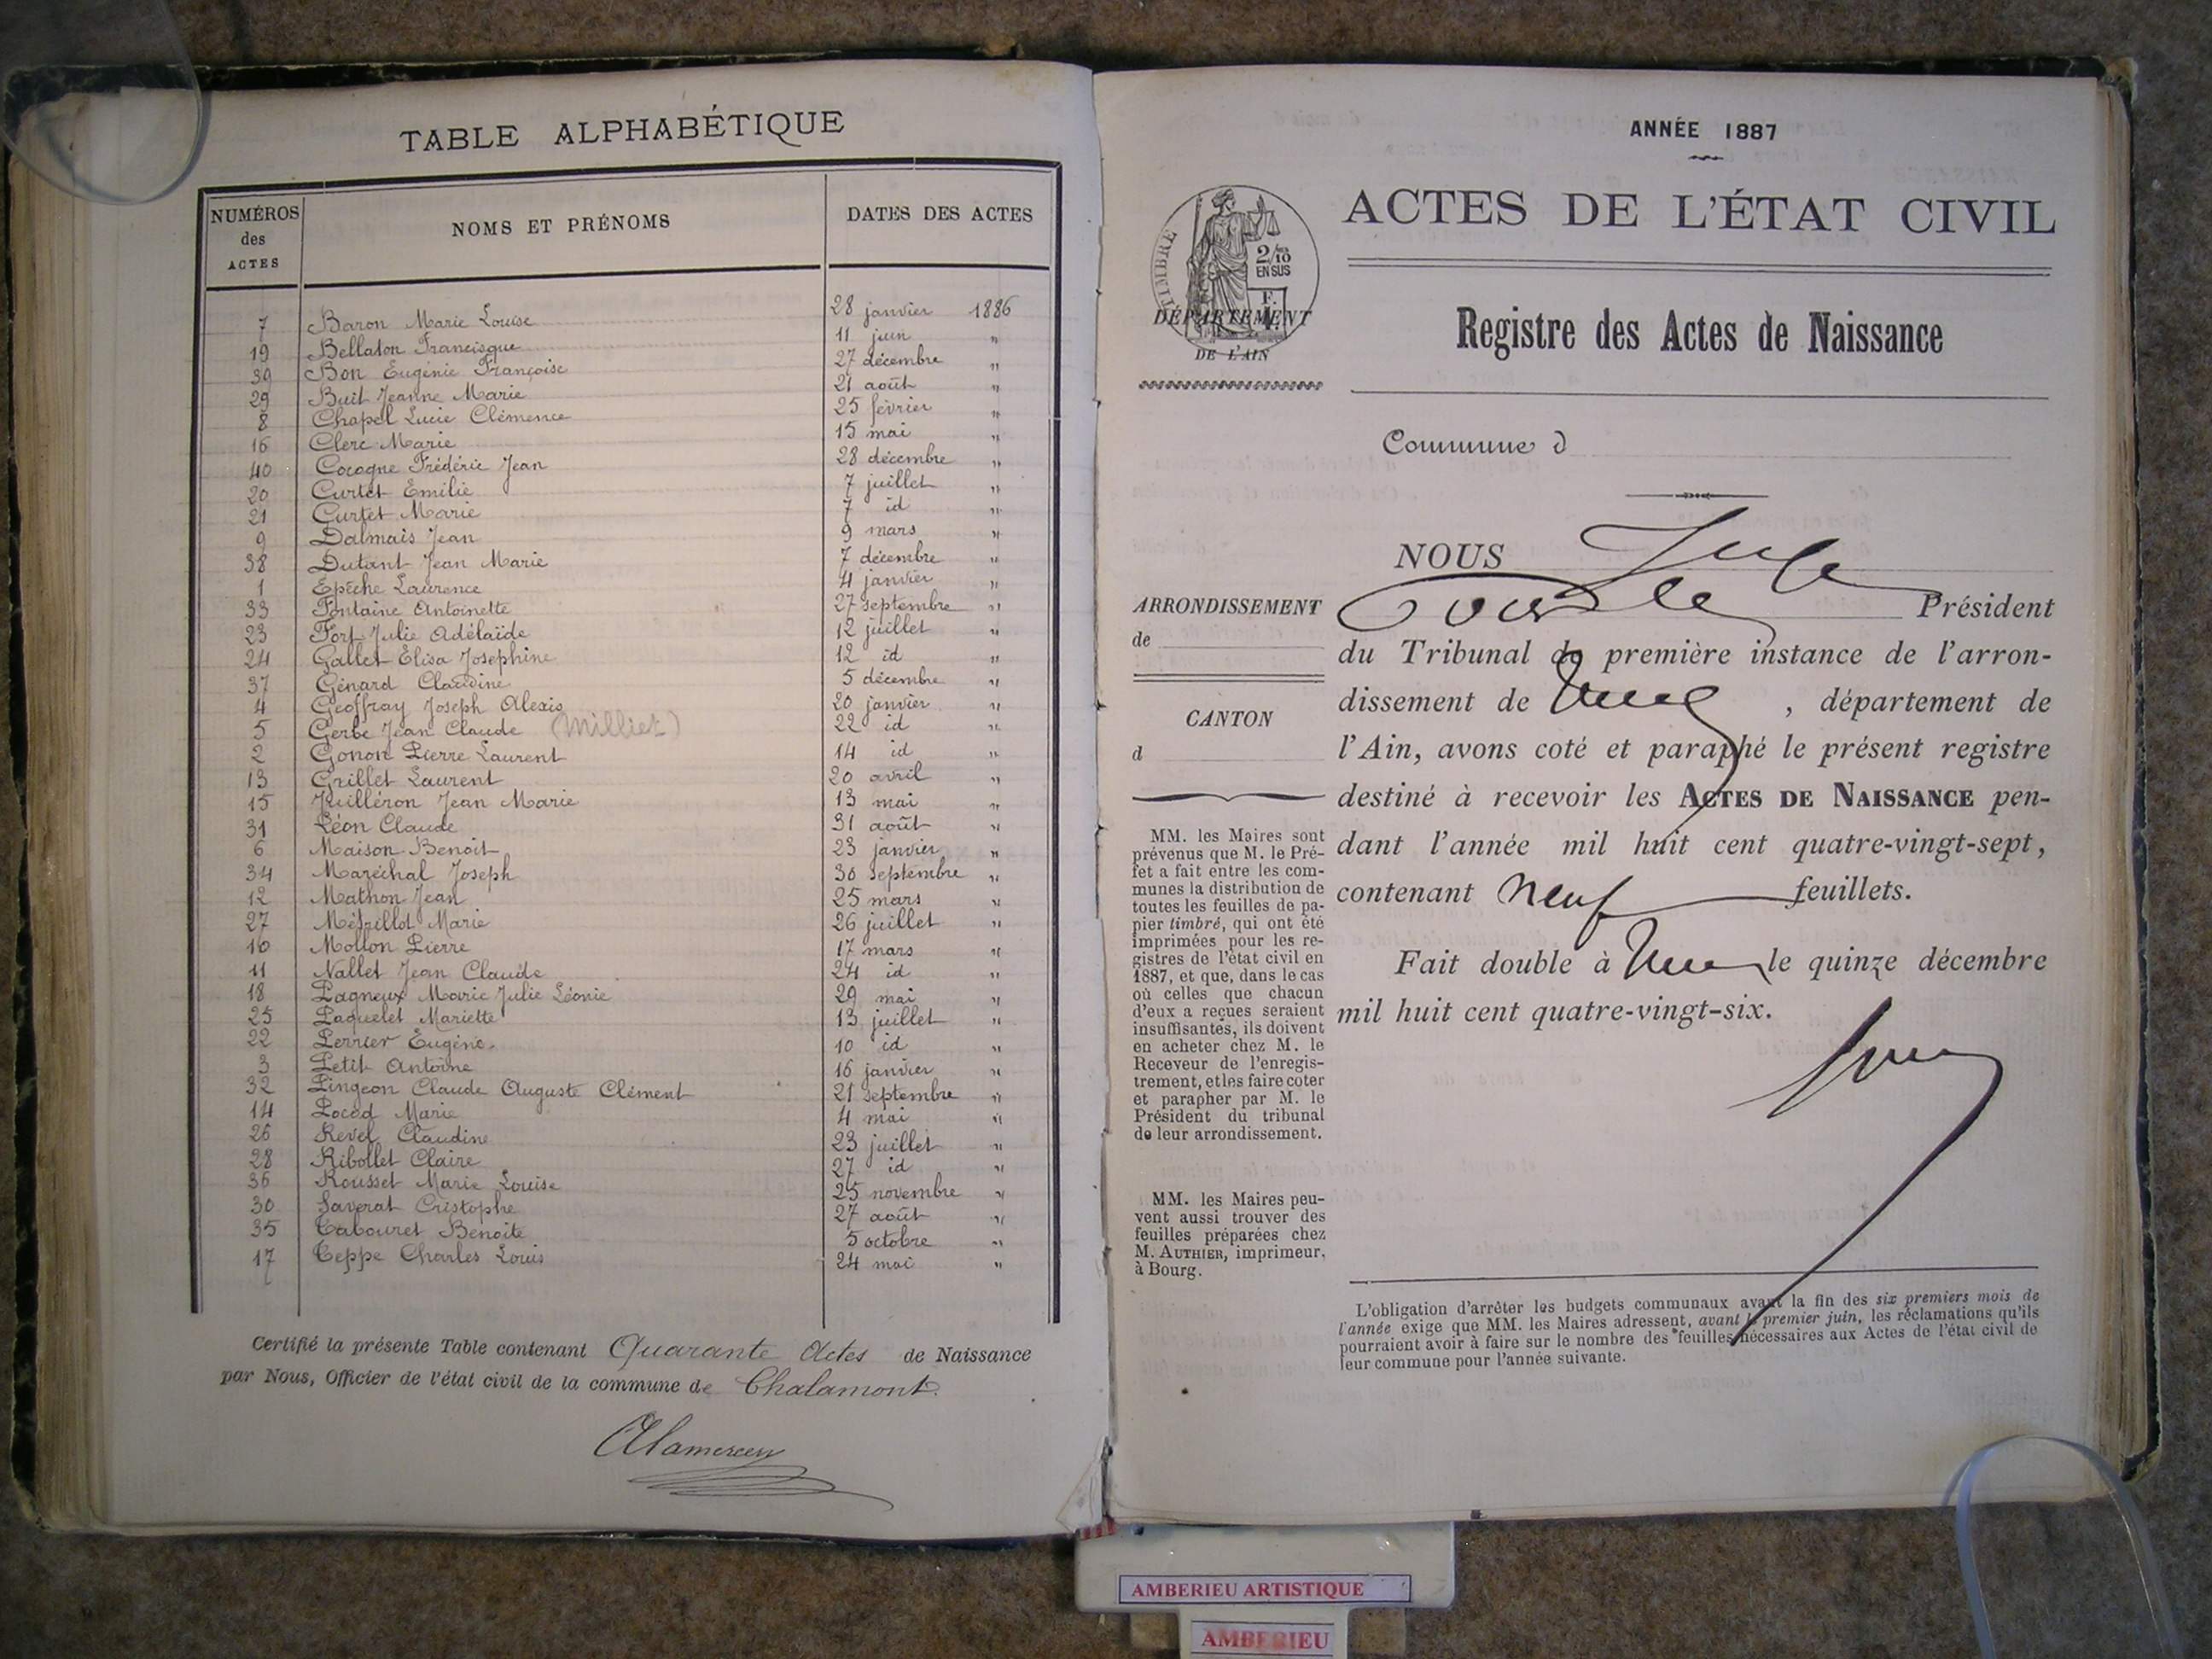 TABLE ALPHABÉTIQUE
NUMÉROS des ACTES NOMS ET PRÉNOMS DATES DES ACTES
7 Baron Marie Louise 28 janvier 1886
19 Bellaton Francisque 11 juin "
39 Bon Eugénie Françoise 27 décembre "
29 Buit Jeanne Marie 21 août "
8 Chapel Lucie Clémence 25 février "
16 Clerc Marie 15 mai "
40 Cocogne Frédéric Jean 28 décembre "
20 Curtet Emilie 7 juillet "
21 Curtet Marie 7 id "
9 Dalmais Jean 9 mars "
38 Dutant Jean Marie 7 décembre "
1 Epêche Laurence 4 janvier "
33 Fontaine Antoinette 27 septembre "
23 Fort Julie Adélaïde 12 juillet "
24 Gallet Elisa Joséphine 12 id "
37 Génard Claudine 5 décembre "
4 Geoffray Joseph Alexis 20 janvier "
5 Gerbe Jean Claude (Milliet) 22 id "
2 Gonon Pierre Laurent 14 id "
13 Grillet Laurent 20 avril "
15 Juilléron Jean Marie 13 mai "
31 Léon Claude 31 août "
6 Maison Benoit 23 janvier "
34 Maréchal Joseph 30 septembre "
12 Mathon Jean 25 mars "
27 Marie 26 juillet "
10 Mollon Pierre 17 mars "
11 Nallet Jean Claude 24 id "
18 Pagneux Marie Julie Léonie 29 mai "
25 Paquelet Mariette 13 juillet "
22 Perrier Eugène 10 id "
3 Petit Antoine 16 janvier "
32 Pingeon Claude Auguste Clément 21 septembre "
14 Pocod Marie 4 mai "
26 Revel Claudine 23 juillet "
28 Ribollet Claire 27 id "
36 Rousset Marie Louise 25 novembre "
30 Saverat Cristophe 27 août "
35 Tabouret Benoite 5 octobre "
17 Teppe Charles Louis 24 mai "
Certifié la présente Table contenant Quarante Actes de Naissance
par Nous, Officier de l'état civil de la commune de Chalamont.
ANNÉE 1887
ACTES DE L'ÉTAT CIVIL
TIMBRE
2/10
EN SUS
F.
DÉPARTEMENT
DE L'AIN
Registre des Actes de Naissance
Commune d
NOUS
ARRONDISSEMENT
de
CANTON
d
Président
du Tribunal de première instance de l'arron-
dissement de , département de
l'Ain, avons coté et paraphé le présent registre
destiné à recevoir les ACTES DE NAISSANCE pen-
dant l'année mil huit cent quatre-vingt-sept,
contenant neuf feuillets.
Fait double à le quinze décembre
mil huit cent quatre-vingt-six.
MM. les Maires sont
prévenus que M. le Pré-
fet a fait entre les com-
munes la distribution de
toutes les feuilles de pa-
pier timbré, qui ont été
imprimées pour les re-
gistres de l'état civil en
1887, et que, dans le cas
où celles que chacun
d'eux a reçues seraient
insuffisantes, ils doivent
en acheter chez M. le
Receveur de l'enregis-
trement, et les faire coter
et parapher par M. le
Président du tribunal
de leur arrondissement.
MM. les Maires peu-
vent aussi trouver des
feuilles préparées chez
M. AUTHIER, imprimeur,
à Bourg.
L'obligation d'arrêter les budgets communaux avant la fin des six premiers mois de
l'année exige que MM. les Maires adressent, avant le premier juin, les réclamations qu'ils
pourraient avoir à faire sur le nombre des feuilles nécessaires aux Actes de l'état civil de
leur commune pour l'année suivante.
AMBERIEU ARTISTIQUE
AMBERIEU